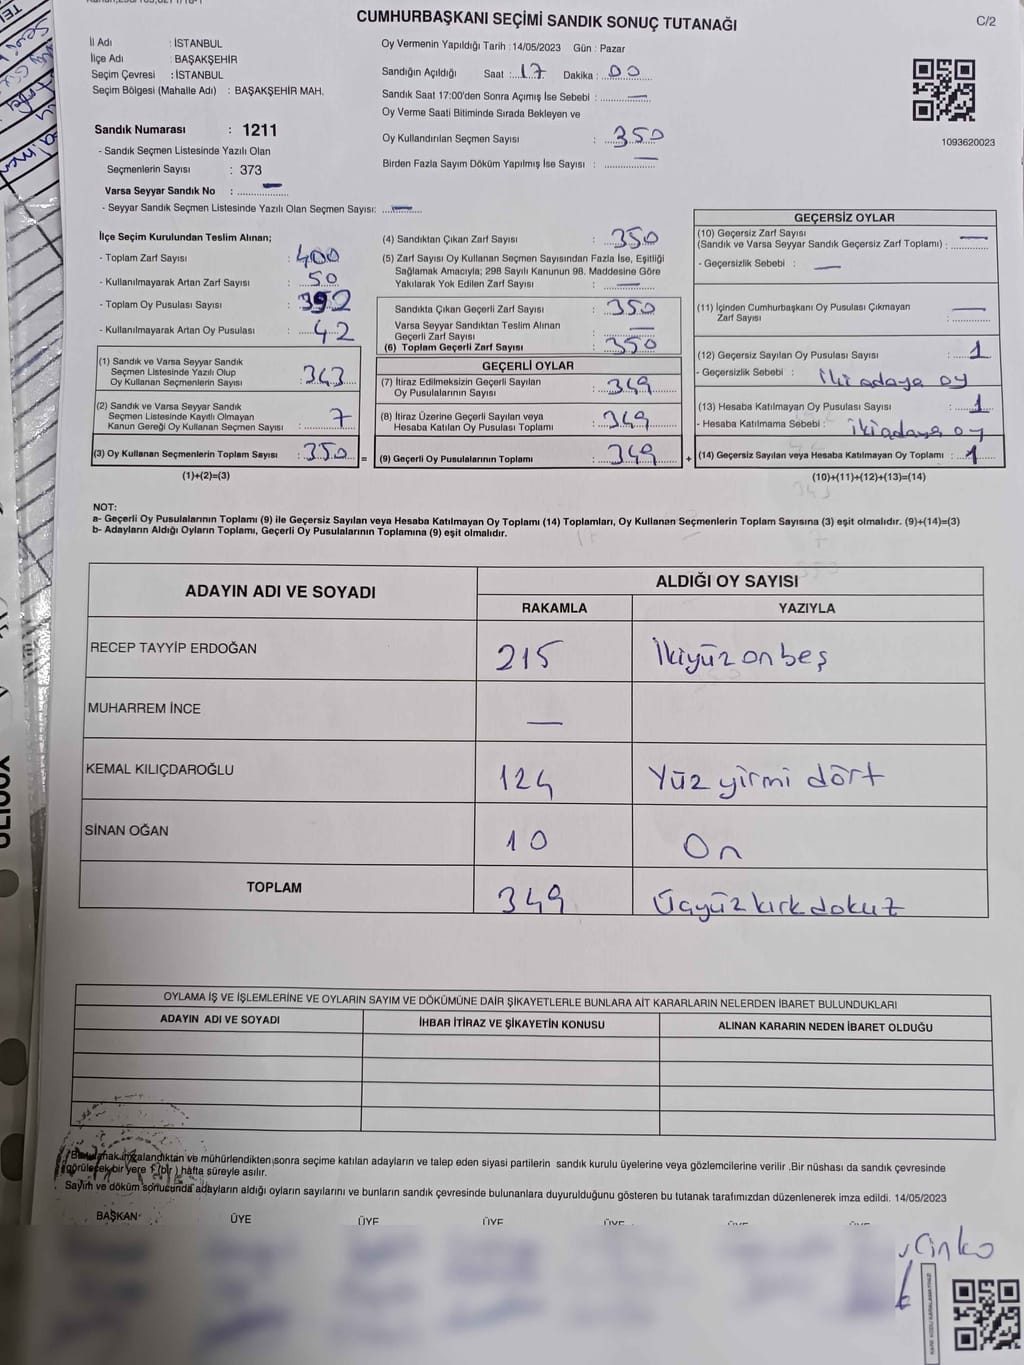 CUMHURBAŞKANI SEÇİMİ SANDIK SONUÇ TUTANAĞI
C/2
İl Adı : İSTANBUL
İlçe Adı : BAŞAKŞEHİR
Seçim Çevresi : İSTANBUL
Seçim Bölgesi (Mahalle Adı) : BAŞAKŞEHİR MAH.
Sandık Numarası : 1211
- Sandık Seçmen Listesinde Yazılı Olan
Seçmenlerin Sayısı : 373
Varsa Seyyar Sandık No : —
- Seyyar Sandık Seçmen Listesinde Yazılı Olan Seçmen Sayısı: —
Oy Vermenin Yapıldığı Tarih : 14/05/2023 Gün : Pazar
Sandığın Açıldığı Saat : 17 Dakika : 00
Sandık Saat 17:00'den Sonra Açımış İse Sebebi : —
Oy Verme Saati Bitiminde Sırada Bekleyen ve
Oy Kullandırılan Seçmen Sayısı : 350
Birden Fazla Sayım Döküm Yapılmış İse Sayısı : —
1093620023
İlçe Seçim Kurulundan Teslim Alınan;
- Toplam Zarf Sayısı : 400
- Kullanılmayarak Artan Zarf Sayısı : 50
- Toplam Oy Pusulası Sayısı : 392
- Kullanılmayarak Artan Oy Pusulası : 42
(1) Sandık ve Varsa Seyyar Sandık
Seçmen Listesinde Yazılı Olup
Oy Kullanan Seçmenlerin Sayısı : 343
(2) Sandık ve Varsa Seyyar Sandık
Seçmen Listesinde Kayıtlı Olmayan
Kanun Gereği Oy Kullanan Seçmen Sayısı : 7
(3) Oy Kullanan Seçmenlerin Toplam Sayısı : 350 =
(1)+(2)=(3)
(4) Sandıktan Çıkan Zarf Sayısı : 350
(5) Zarf Sayısı Oy Kullanan Seçmen Sayısından Fazla İse, Eşitliği
Sağlamak Amacıyla; 298 Sayılı Kanunun 98. Maddesine Göre
Yakılarak Yok Edilen Zarf Sayısı : —
Sandıkta Çıkan Geçerli Zarf Sayısı : 350
Varsa Seyyar Sandıktan Teslim Alınan
Geçerli Zarf Sayısı : —
(6) Toplam Geçerli Zarf Sayısı : 350
GEÇERLİ OYLAR
(7) İtiraz Edilmeksizin Geçerli Sayılan
Oy Pusulalarının Sayısı : 349
(8) İtiraz Üzerine Geçerli Sayılan veya
Hesaba Katılan Oy Pusulası Toplamı : 349
(9) Geçerli Oy Pusulalarının Toplamı : 349 +
GEÇERSİZ OYLAR
(10) Geçersiz Zarf Sayısı
(Sandık ve Varsa Seyyar Sandık Geçersiz Zarf Toplamı) : —
- Geçersizlik Sebebi : —
(11) İçinden Cumhurbaşkanı Oy Pusulası Çıkmayan
Zarf Sayısı : —
(12) Geçersiz Sayılan Oy Pusulası Sayısı : 1
- Geçersizlik Sebebi : iki adaya oy
(13) Hesaba Katılmayan Oy Pusulası Sayısı : 1
- Hesaba Katılmama Sebebi : iki adaya oy
(14) Geçersiz Sayılan veya Hesaba Katılmayan Oy Toplamı : 1
(10)+(11)+(12)+(13)=(14)
NOT:
a- Geçerli Oy Pusulalarının Toplamı (9) ile Geçersiz Sayılan veya Hesaba Katılmayan Oy Toplamı (14) Toplamları, Oy Kullanan Seçmenlerin Toplam Sayısına (3) eşit olmalıdır. (9)+(14)=(3)
b- Adayların Aldığı Oyların Toplamı, Geçerli Oy Pusulalarının Toplamına (9) eşit olmalıdır.
ADAYIN ADI VE SOYADI ALDIĞI OY SAYISI
RAKAMLA YAZIYLA
RECEP TAYYİP ERDOĞAN 215 İkiyüz on beş
MUHARREM İNCE —
KEMAL KILIÇDAROĞLU 124 Yüz yirmi dört
SİNAN OĞAN 10 On
TOPLAM 349 Üçyüz kırk dokuz
OYLAMA İŞ VE İŞLEMLERİNE VE OYLARIN SAYIM VE DÖKÜMÜNE DAİR ŞİKAYETLERLE BUNLARA AİT KARARLARIN NELERDEN İBARET BULUNDUKLARI
ADAYIN ADI VE SOYADI İHBAR İTİRAZ VE ŞİKAYETİN KONUSU ALINAN KARARIN NEDEN İBARET OLDUĞU
Bu tutanak imzalandıktan ve mühürlendikten sonra seçime katılan adayların ve talep eden siyasi partilerin sandık kurulu üyelerine veya gözlemcilerine verilir .Bir nüshası da sandık çevresinde
görülecek bir yere 1 (bir ) hafta süreyle asılır.
Sayım ve döküm sonucunda adayların aldığı oyların sayılarını ve bunların sandık çevresinde bulunanlara duyurulduğunu gösteren bu tutanak tarafımızdan düzenlenerek imza edildi. 14/05/2023
BAŞKAN ÜYE ÜYE ÜYE ÜYE ÜYE ÜYE